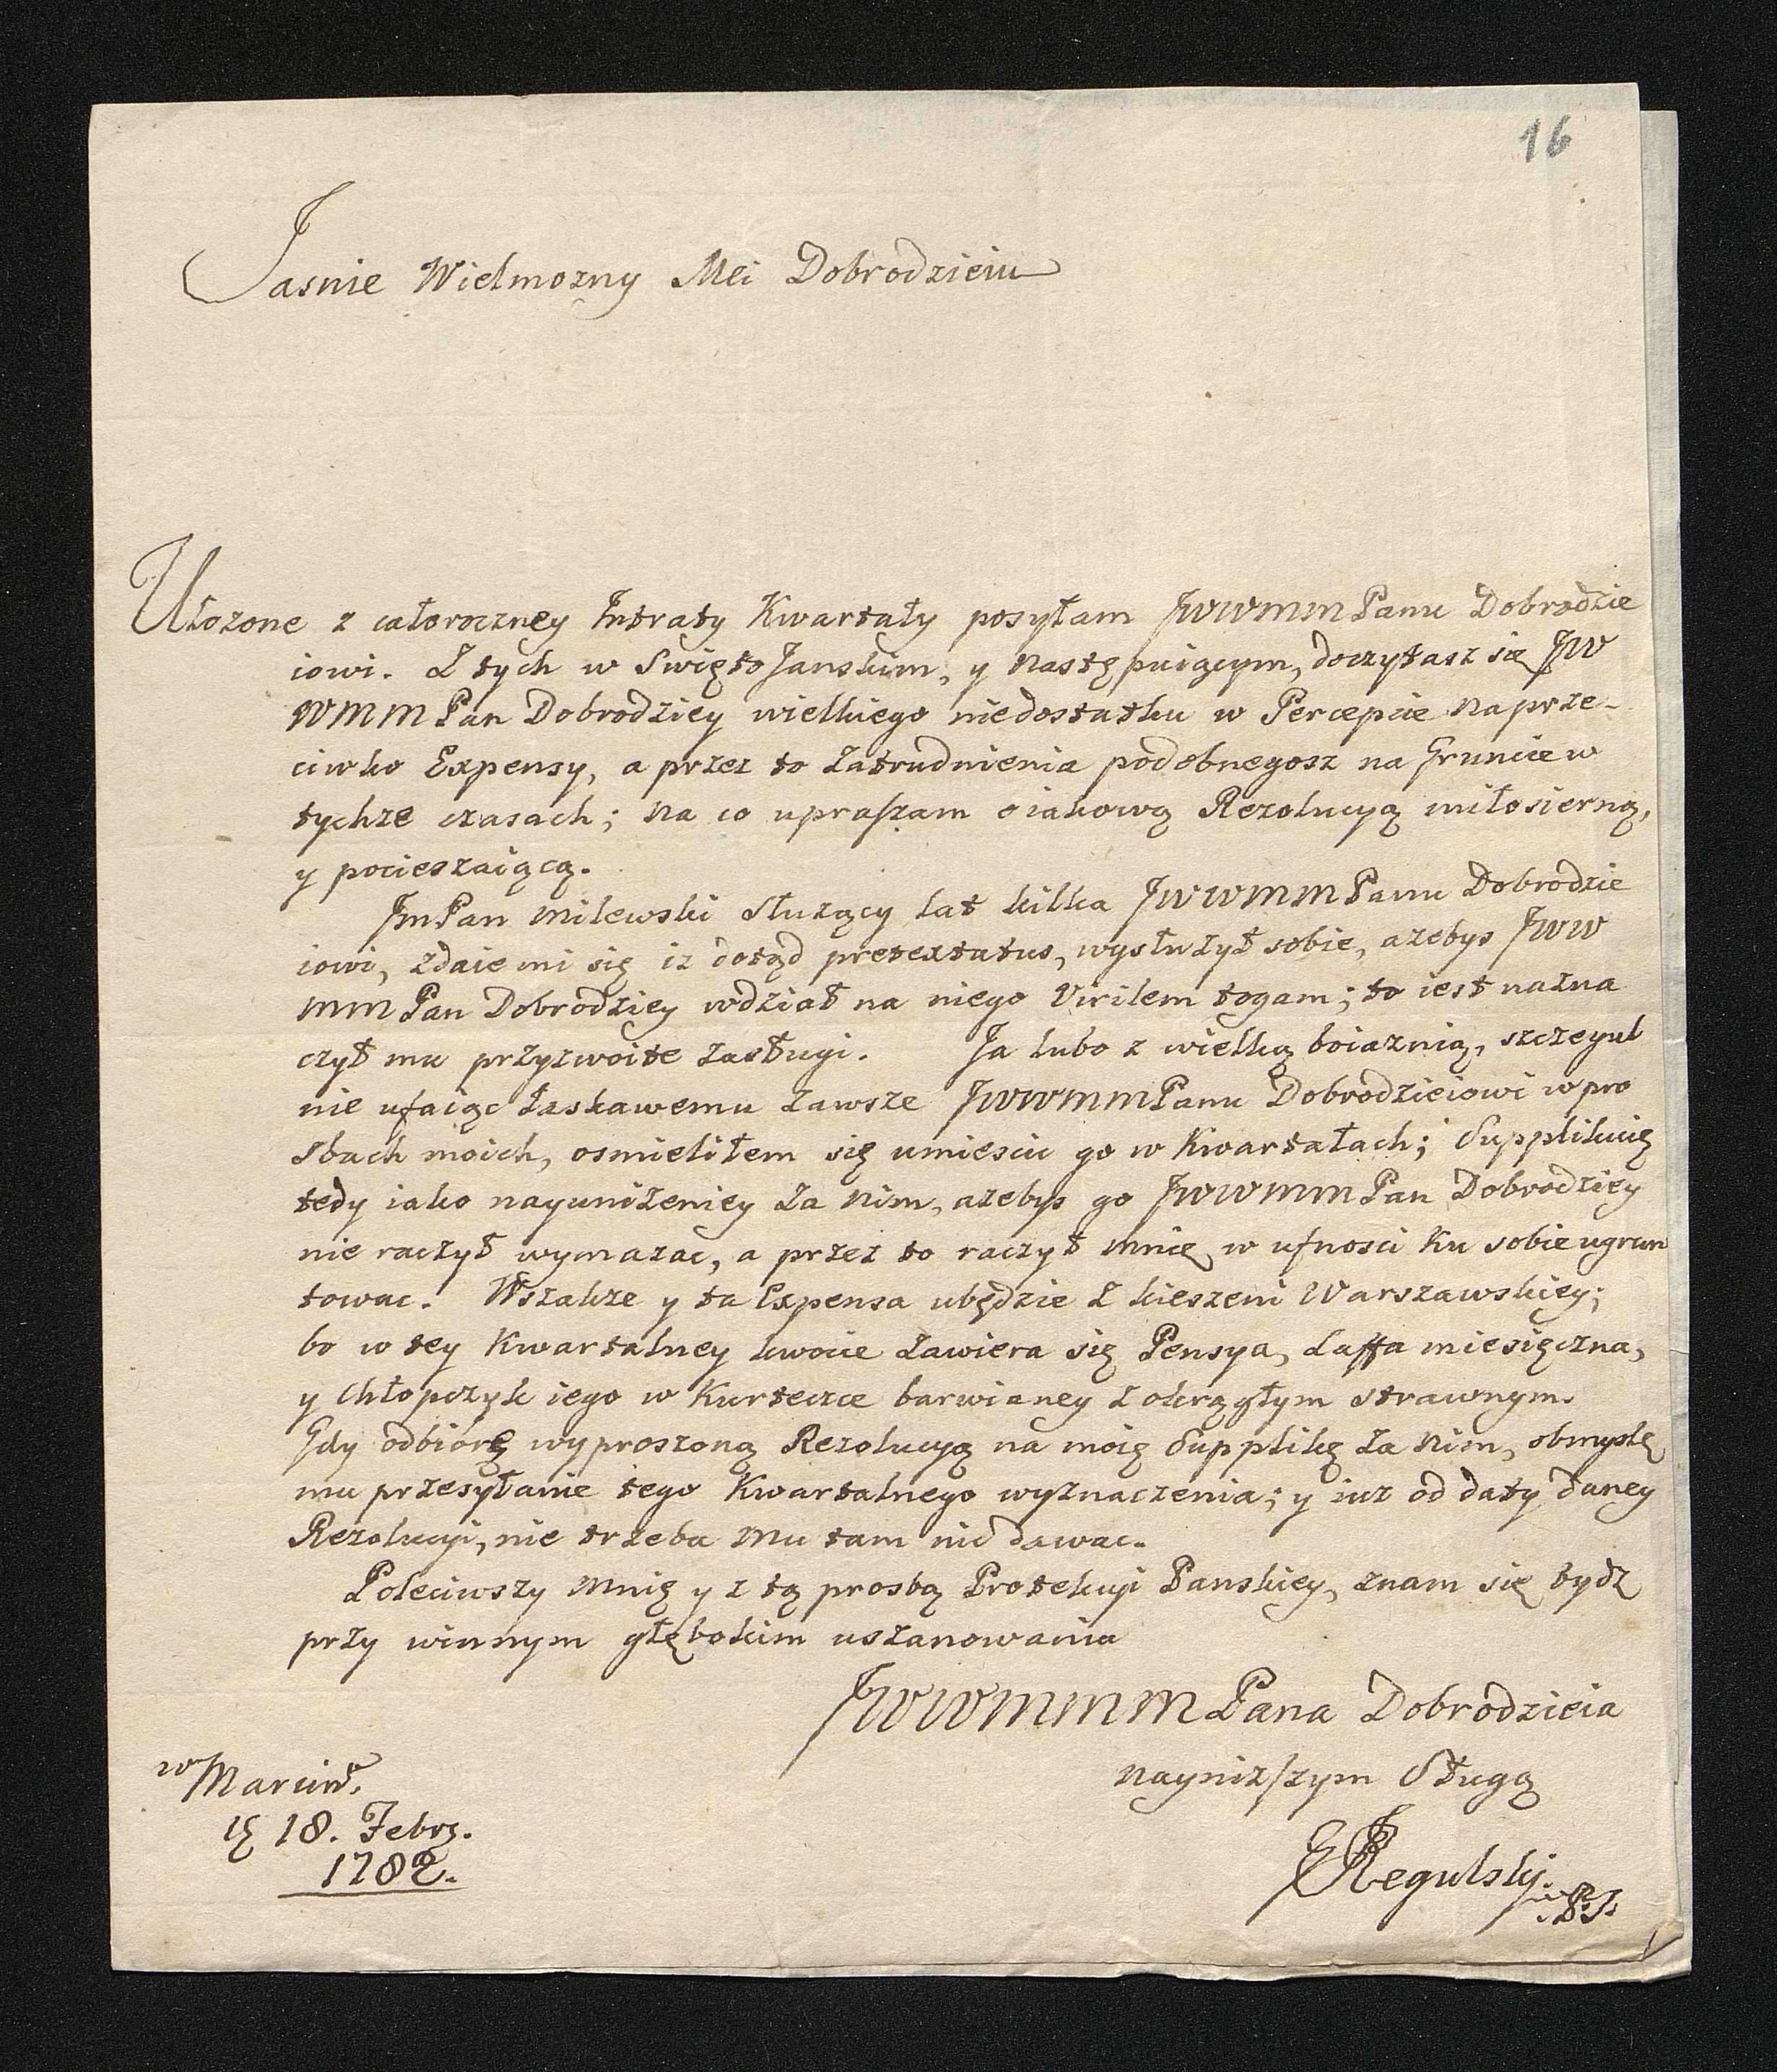 16
Jasnie Wielmozny Mci Dobrodzieiu
Ułozone z całoroczney Intraty Kwartały posyłam JWWMMPanu Dobrodzie
iowi. Z tych w SwiętoJanskim, y następuiącym, doczytasz się JW
WMMPan Dobrodziey wielkiego niedostatku w Percepcie naprze-
ciwko Expensy, a przez to zatrudnienia podobnegosz na Gruncie w
tychze czasach; na co upraszam o iakową Rezolucyą miłosierną,
y pocieszaiącą.
JmPan Milewski Słuzący lat kilka JWWMMPanu Dobrodzie
iowi, zdaie mi się iz dotąd pretextatus, wysłuzył sobie, azebys JWW
MMPan Dobrodziey wdział na niego Virilem togam; to iest nazna
czył mu przyzwoite zasługi. Ja lubo z wielką boiaznią, szczegul
nie ufaiąc łaskawemu zawsze JWWMMPanu Dobrodzieiowi w pro
sbach moich, osmieliłem się umiescic go w Kwartałach; Supplikuię
tedy iako nayunizeniey za nim, azebys go JWWMMPan Dobrodziey
nie raczył wymazac, a przez to raczył mnie w ufnosci ku sobie ugrun
towac. Wszakze y ta Expensa ubędzie z kieszeni Warszawskiey;
bo w tey Kwartalney kwocie zawiera się Pensya, Laffa miesięczna,
y Chłopczyk iego w Kurteczce barwianey z okrągłym strawnym.
Gdy odbiorę wyproszoną Rezolucyą na moię Supplikę za nim, obmyslę
mu przesyłanie tego Kwartalnego wyznaczenia; y iuz od daty daney
Rezolucyi, nie trzeba mu tam nic dawac.
Poleciwszy mnię y z tą prosbą Protekcyi Panskiey, znam się bydz
przy winnym głębokim uszanowaniu
JWWMMM Pana Dobrodzieia
nayniższym Sługą
Regulski
w Marcin.
18. Febr.
1782.